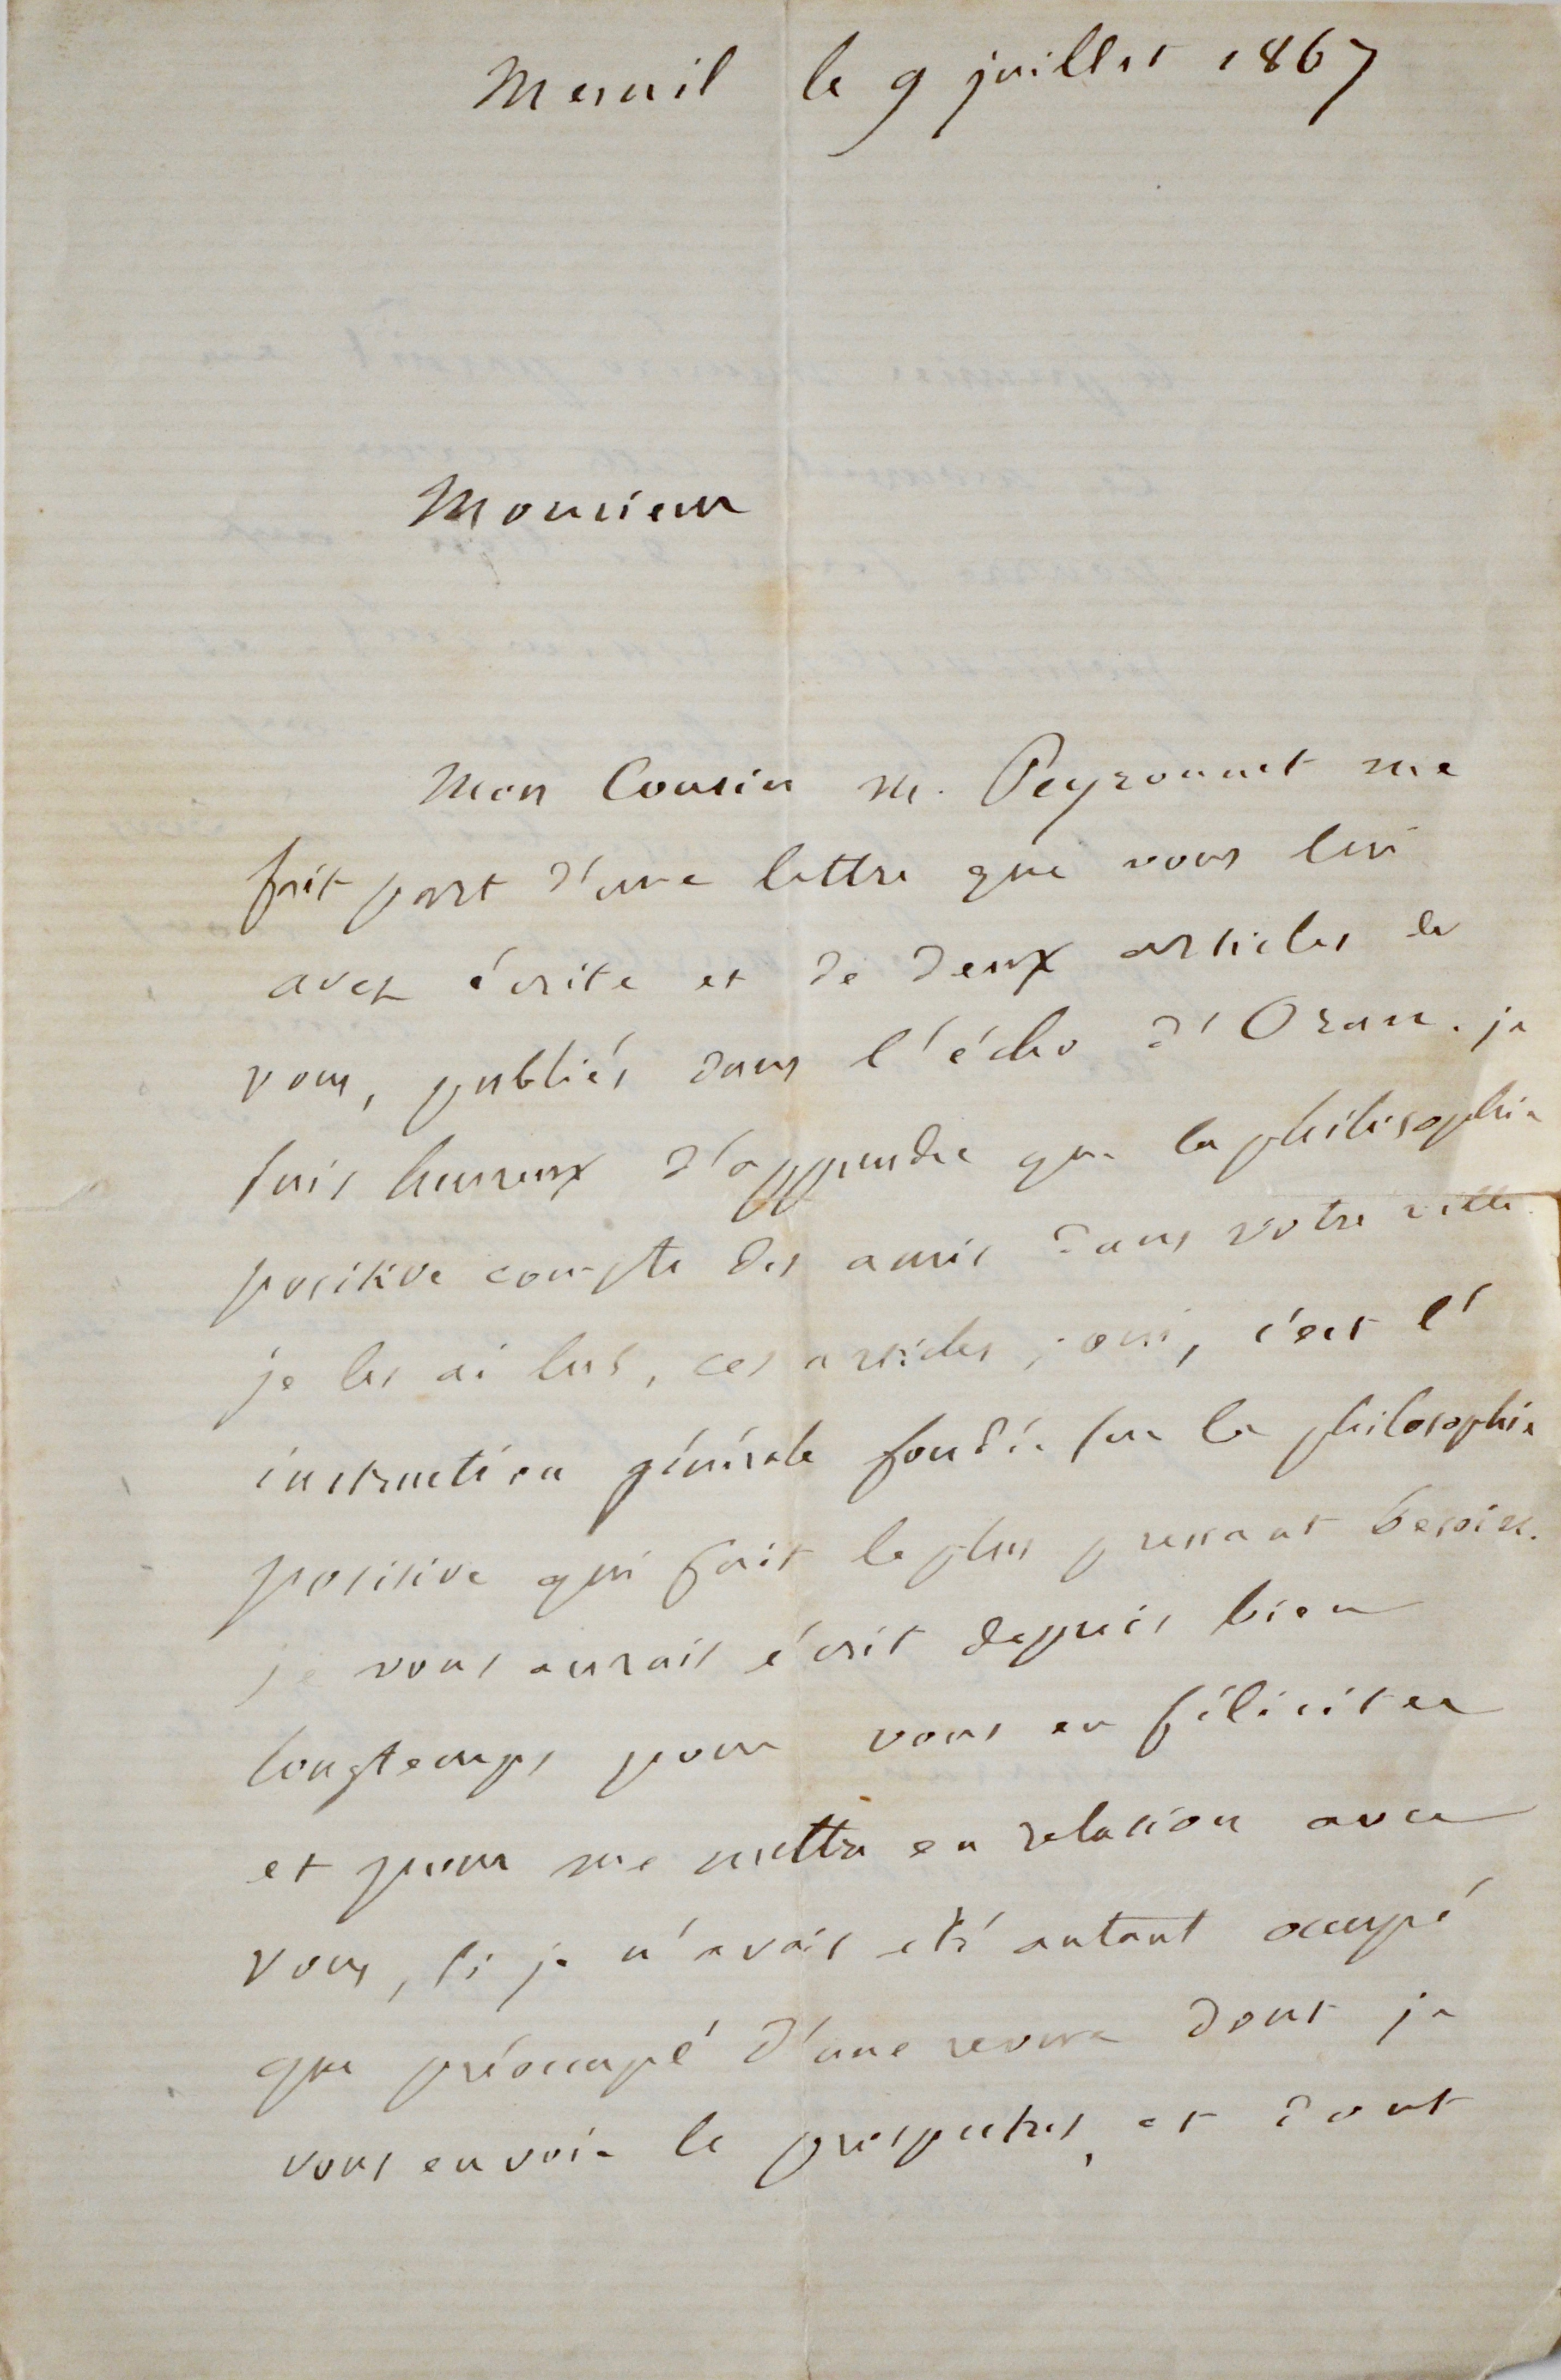 Mesnil le 9 juillet 1867
Monsieur
Mon Cousin M. Peyronnet me
fait part d'une lettre que vous lui
avez écrite et de deux articles de
vous, publiés dans l'écho d'Oran. je
suis heureux d'apprendre que la philosophie
positive compte des amis dans votre ville.
je les ai lus, ces articles ; oui, c'est l'
instruction générale fondée sur la philosophie
positive qui fait le plus pressant besoin.
je vous aurais écrit depuis bien
longtemps pour vous en féliciter
et pour me mettre en relation avec
vous, si je n'avais été autant occupé
que préoccupé d'une revue dont je
vous envoie le prospectus, et dont